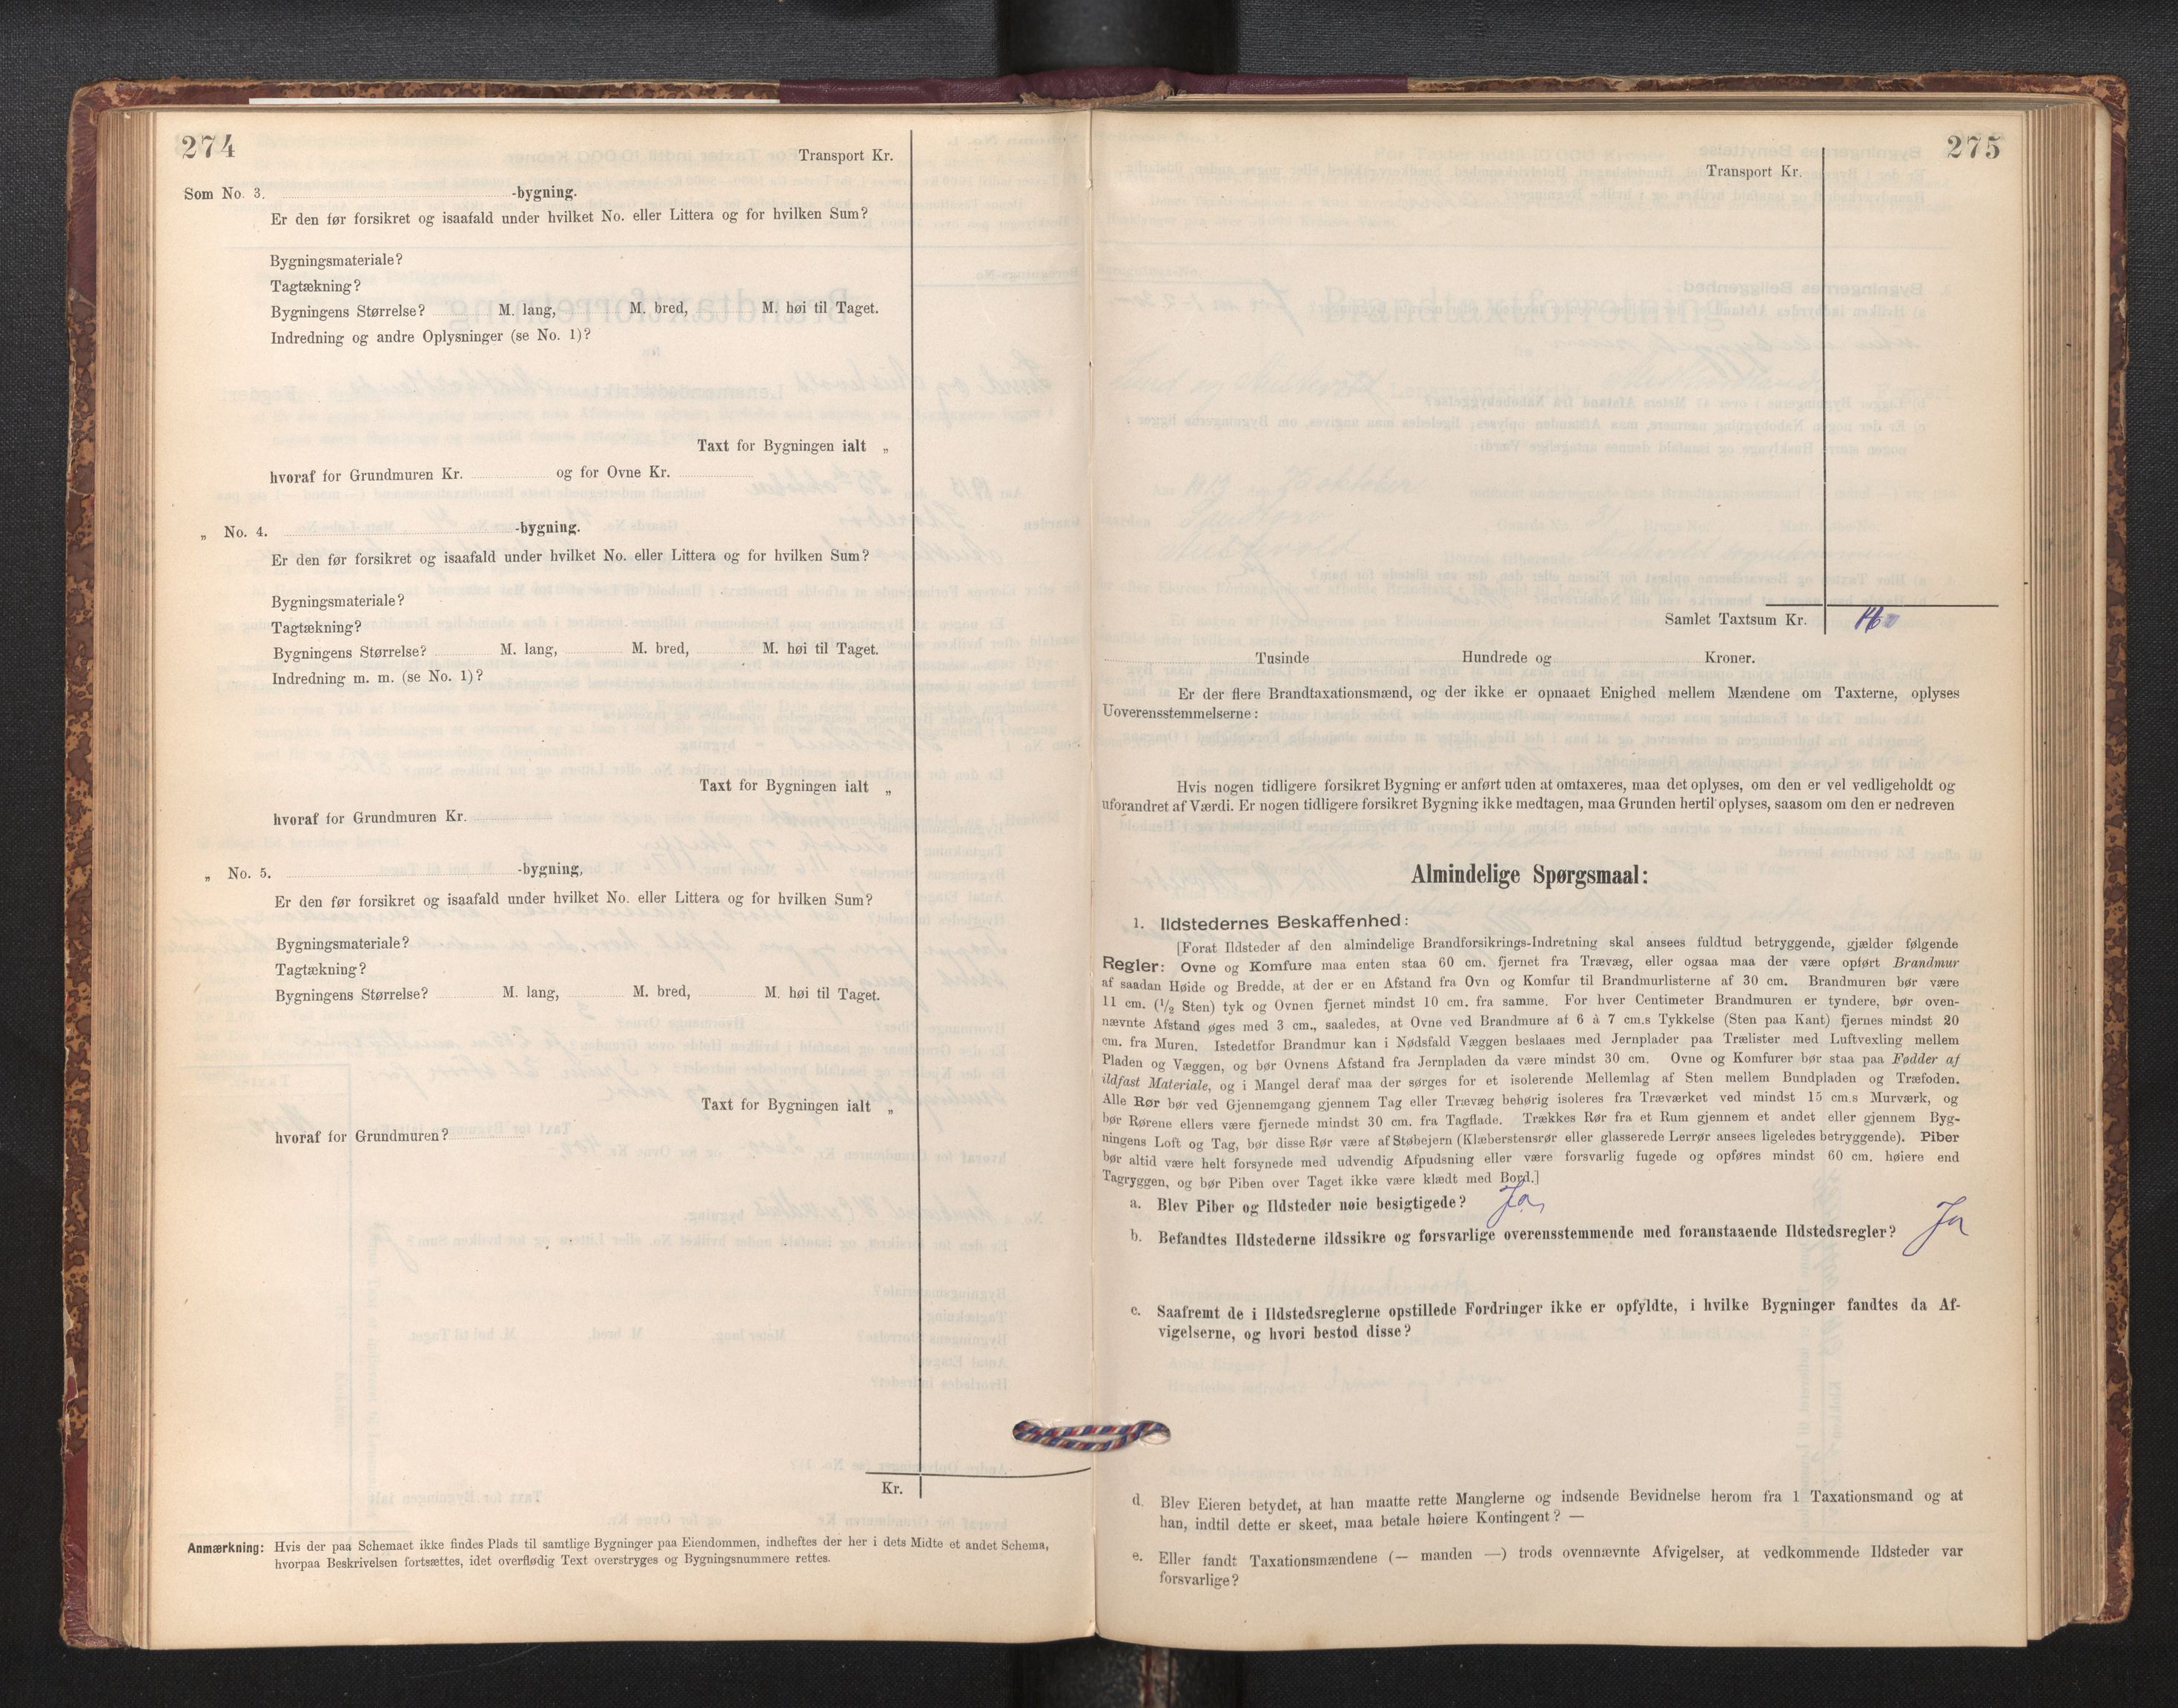 274
Transport Kr.
Som No. 3. -bygning.
Er den før forsikret og isaafald under hvilket No. eller Littera og for hvilken Sum?
Bygningsmateriale?
Tagtækning?
Bygningens Størrelse? M. lang, M. bred, M. høi til Taget.
Indredning og andre Oplysninger (se No. 1)?
Taxt for Bygningen ialt „
hvoraf for Grundmuren Kr. og for Ovne Kr.
„ No. 4. -bygning.
Er den før forsikret og isaafald under hvilket No. eller Littera og for hvilken Sum?
Bygningsmateriale?
Tagtækning?
Bygningens Størrelse? M. lang, M. bred, M. høi til Taget.
Indredning m. m. (se No. 1)?
Taxt for Bygningen ialt „
hvoraf for Grundmuren Kr.
„ No. 5. -bygning,
Er den før forsikret og isaafald under hvilket No. eller Littera og for hvilken Sum?
Bygningsmateriale?
Tagtækning?
Bygningens Størrelse? M. lang, M. bred, M. høi til Taget.
Taxt for Bygningen ialt „
hvoraf for Grundmuren?
Kr.
Anmærkning: Hvis der paa Schemaet ikke findes Plads til samtlige Bygninger paa Eiendommen, indheftes der her i dets Midte et andet Schema,
hvorpaa Beskrivelsen fortsættes, idet overflødig Text overstryges og Bygningsnummere rettes.
275
Transport Kr.
Samlet Taxtsum Kr.
Tusinde Hundrede og Kroner.
Er der flere Brandtaxationsmænd, og der ikke er opnaaet Enighed mellem Mændene om Taxterne, oplyses
Uoverensstemmelserne:
Hvis nogen tidligere forsikret Bygning er anført uden at omtaxeres, maa det oplyses, om den er vel vedligeholdt og
uforandret af Værdi. Er nogen tidligere forsikret Bygning ikke medtagen, maa Grunden hertil oplyses, saasom om den er nedreven
Almindelige Spørgsmaal:
1. Ildstedernes Beskaffenhed:
[Forat Ildsteder af den almindelige Brandforsikrings-Indretning skal ansees fuldtud betryggende, gjælder følgende
Regler: Ovne og Komfure maa enten staa 60 cm. fjernet fra Trævæg, eller ogsaa maa der være opført Brandmur
af saadan Høide og Bredde, at der er en Afstand fra Ovn og Komfur til Brandmurlisterne af 30 cm. Brandmuren bør være
11 cm. (1/2 Sten) tyk og Ovnen fjernet mindst 10 cm. fra samme. For hver Centimeter Brandmuren er tyndere, bør oven-
nævnte Afstand øges med 3 cm., saaledes, at Ovne ved Brandmure af 6 à 7 cm.s Tykkelse (Sten paa Kant) fjernes mindst 20
cm. fra Muren. Istedetfor Brandmur kan i Nødsfald Væggen beslaaes med Jernplader paa Trælister med Luftvexling mellem
Pladen og Væggen, og bør Ovnens Afstand fra Jernpladen da være mindst 30 cm. Ovne og Komfurer bør staa paa Fødder af
ildfast Materiale, og i Mangel deraf maa der sørges for et isolerende Mellemlag af Sten mellem Bundpladen og Træfoden.
Alle Rør bør ved Gjennemgang gjennem Tag eller Trævæg behørig isoleres fra Træværket ved mindst 15 cm.s Murværk, og
bør Rørene ellers være fjernede mindst 30 cm. fra Tagflade. Trækkes Rør fra et Rum gjennem et andet eller gjennem Byg-
ningens Loft og Tag, bør disse Rør være af Støbejern (Klæberstensrør eller glasserede Lerrør ansees ligeledes betryggende). Piber
bør altid være helt forsynede med udvendig Afpudsning eller være forsvarlig fugede og opføres mindst 60 cm. høiere end
Tagryggen, og bør Piben over Taget ikke være klædt med Bord.]
a. Blev Piber og Ildsteder nøie besigtigede? Ja
b. Befandtes Ildstederne ildssikre og forsvarlige overensstemmende med foranstaaende Ildstedsregler? Ja
c. Saafremt de i Ildstedsreglerne opstillede Fordringer ikke er opfyldte, i hvilke Bygninger fandtes da Af-
vigelserne, og hvori bestod disse?
d. Blev Eieren betydet, at han maatte rette Manglerne og indsende Bevidnelse herom fra 1 Taxationsmand og at
han, indtil dette er skeet, maa betale høiere Kontingent? —
e. Eller fandt Taxationsmændene (— manden —) trods ovennævnte Afvigelser, at vedkommende Ildsteder var
forsvarlige?